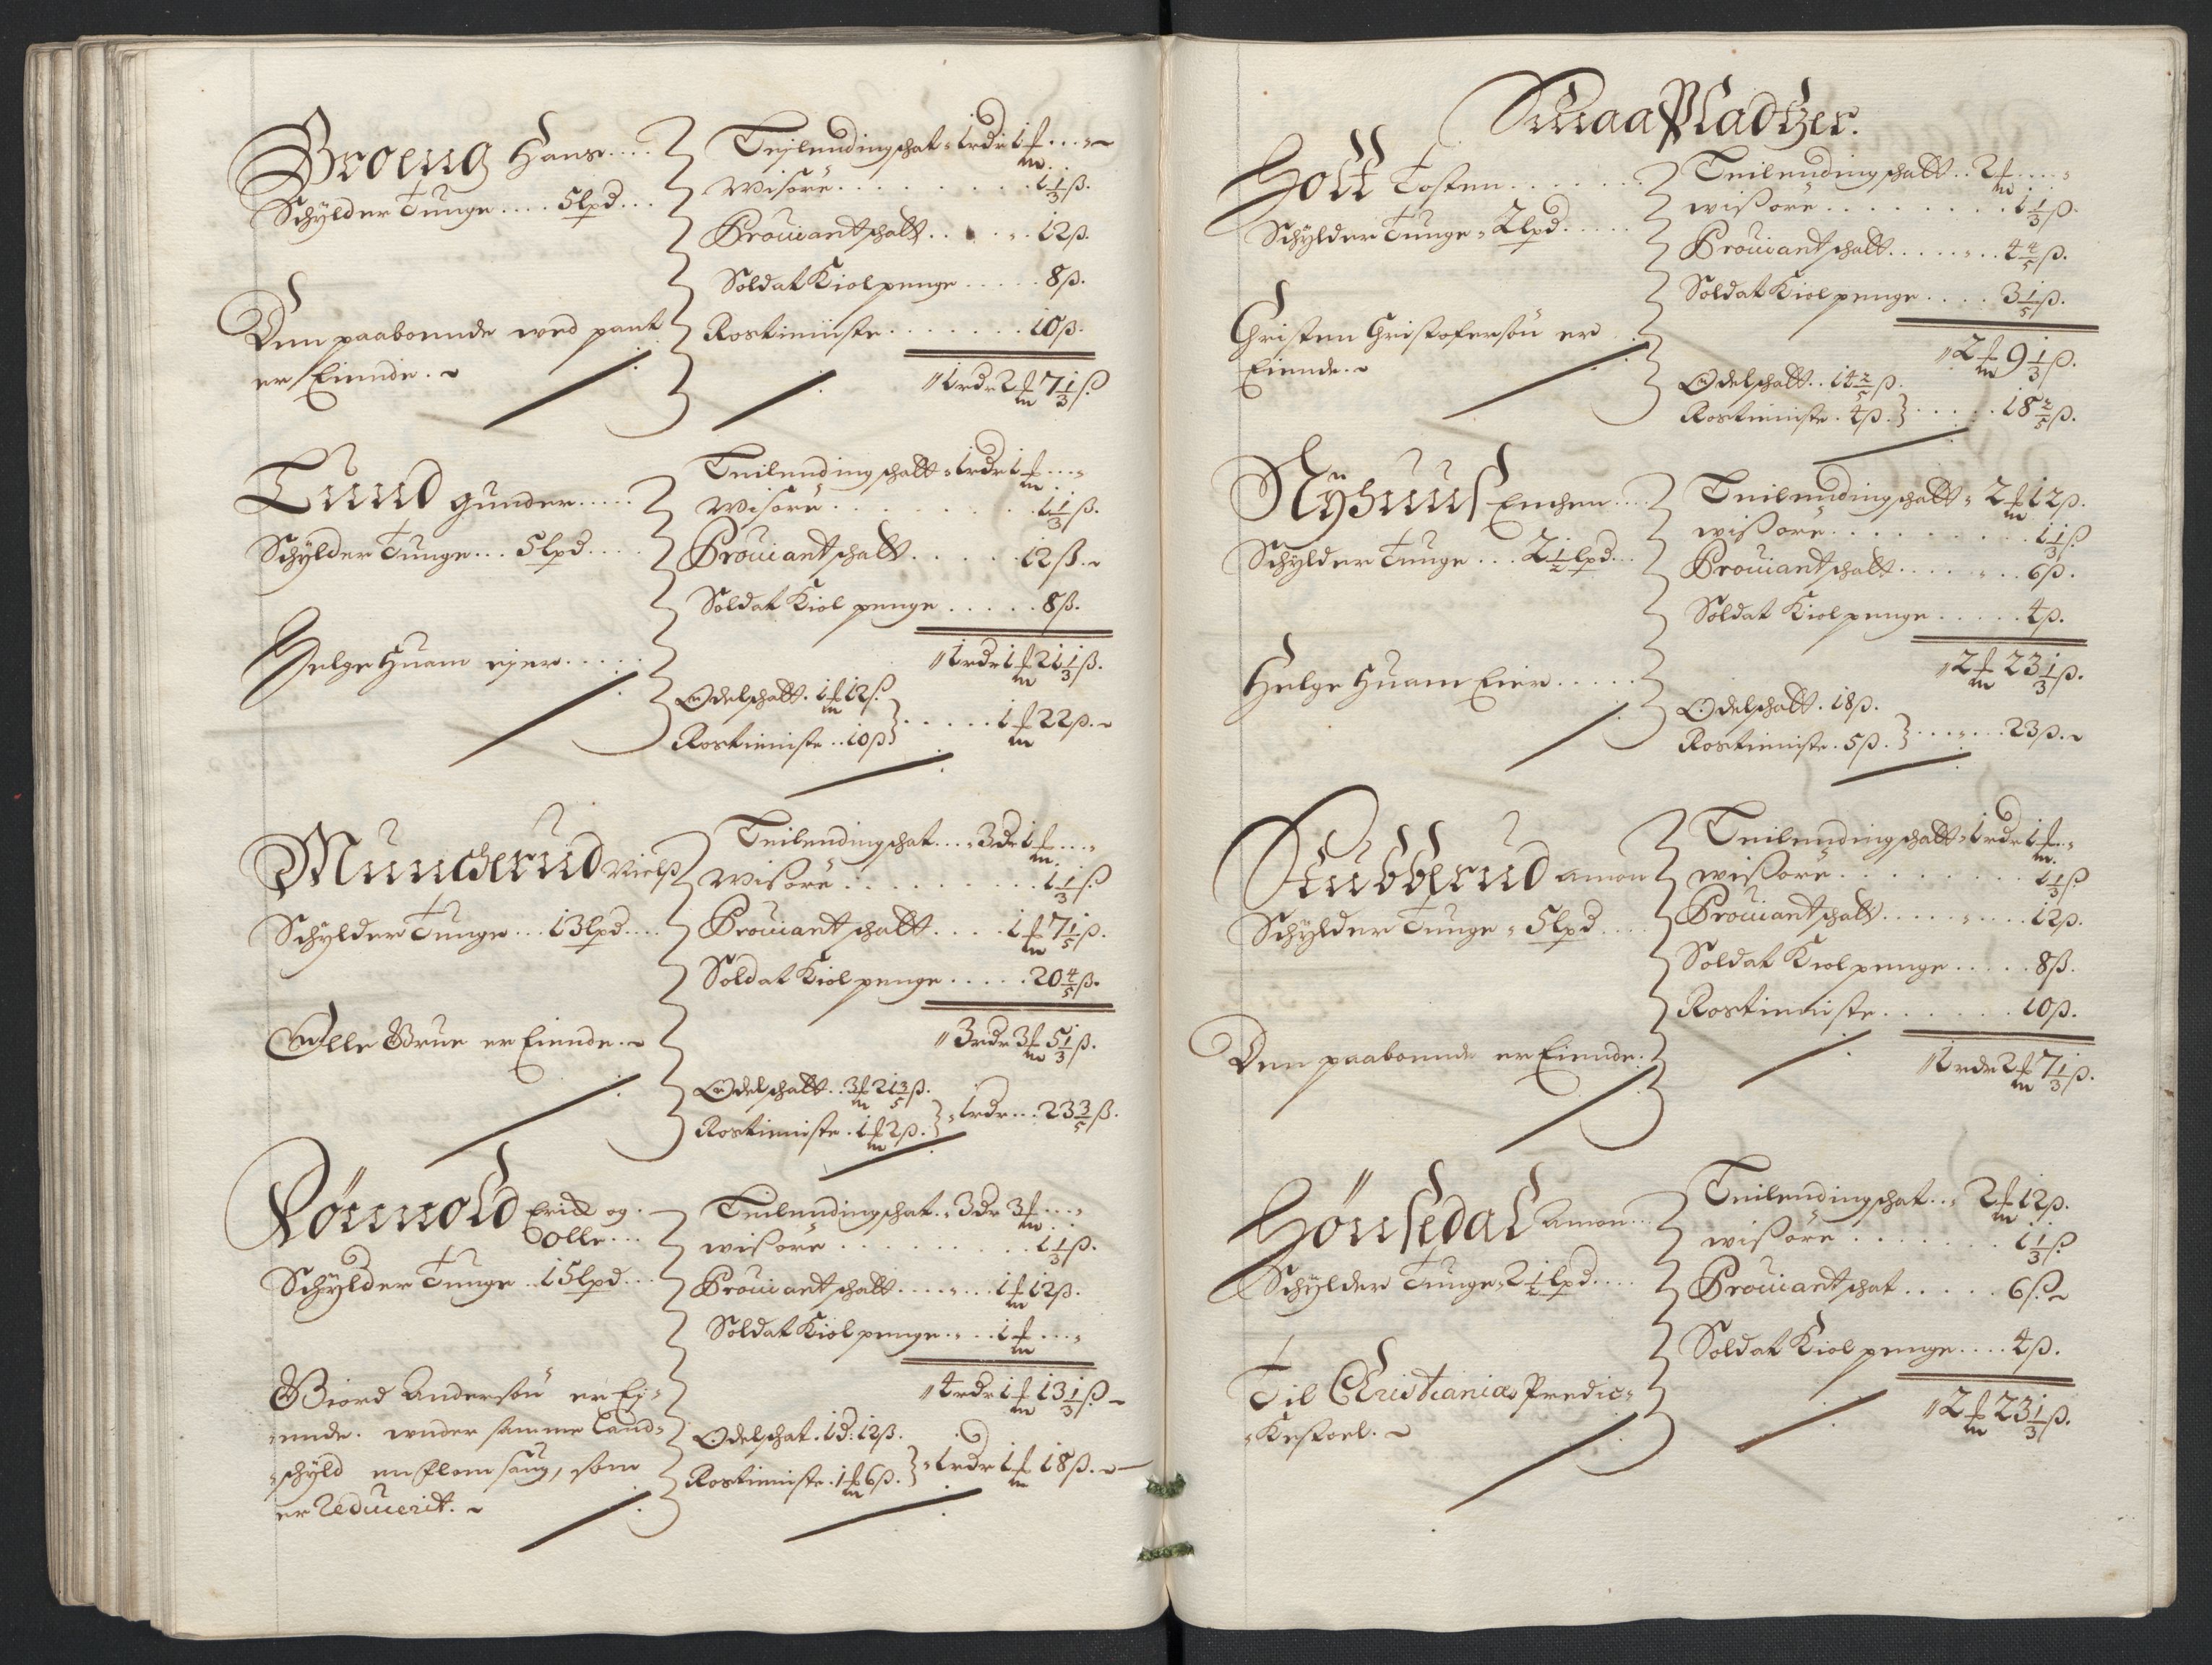 Broeng Hans....
Schÿlder Tunge.... 5 lpd...
Den paaboende wed pant
er Eiende.
Teilendingschat " 1 rdr 1 m ... "
Wisøre ......... 1 1/3 ß.
Prouiantschatt..... 12 ß.
Soldat Kiolpenge ..... 8 ß.
Rostieniste ....... 10 ß.
" 1 rdr 2 m 7 1/3 ß.
Gunder.....
Schÿlder Tunge... 5 lpd....
Helge Huam ejer.....
Teilendingschatt " 1 rdr 1 m ... "
Wisøre ......... 1 1/3 ß.
Prouiantschatt..... 12 ß.
Soldat Kiol penge ..... 8 ß.
" 1 rdr 1 m 21 1/3 ß.
Odelschatt. 1 m 12 ß.
Rostieniste .. 10 ß } ..... 1 m 22 ß.
Muncherud Nielß
Schÿlder Tunge... 13 lpd....
Olle Brue er Eiende.
Teilendingschat... " 3 dr 1 m ... "
Wisøre ......... 1 1/3 ß.
Prouiantschatt.... 1 m 7 1/5 ß.
Soldat Kiolpenge ..... 20 4/5 ß.
" 3 rdr 3 m 5 1/3 ß.
Odelschatt.. 3 m 21 3/5 ß.
Rostieniste . 1 m 2 ß. } " 1 rdr ... 23 3/5 ß.
Erich og
Olle...
Schÿlder Tunge .. 15 lpd...
Biord Andersøn er Ej=
=ende. under samme Land=
=schÿld en flom saug, som
er Reducerit.
Teilendingschat.. " 3 dr 3 m ... "
wisøre ......... 1 1/3 ß.
Prouiantschatt....... 1 m 12 ß.
Soldat Kiolpenge .... 1 m ... "
" 4 rdr 1 m 13 1/3 ß.
Odelschat. 1 d: 12 ß.
Rostieniste . 1 m 6 ß. } " 1 rdr 1 m 18 ß.
Smaa Pladtzer.
Holt Tosten.......
Schÿlder Tunge " 2 lpd.....
Christen Christofersøn er
Eiende.
Teilendingschatt.. 2 m .... "
wisøre ......... 1 1/3 ß.
Prouiantschatt........ 4 4/5 ß.
Soldat Kiolpenge .... 3 1/5 ß.
" 2 m 9 1/3 ß.
Odelschatt.. 14 2/5 ß.
Rostieniste . 4 ß. } ..... 18 2/5 ß.
Nÿhuus Enchen....
Schÿlder Tunge ... 2 1/2 lpd...
Helge Huam Eier.....
Teilendingschatt " 2 m 12 ß.
wisøre ......... 1 1/3 ß
Prouiantschatt....... 6 ß.
Soldat Kiolpenge ..... 4 ß.
" 2 m 23 1/3 ß.
Odelschatt. 18 ß.
Rostieniste . 5 ß. } ...... 23 ß.
Stubberud Amon
Schÿlder Tunge " 5 lpd....
Den paaboende er Eiende.
Teilendingschatt " 1 rdr 1 m .. "
wisøre ......... 1 1/3 ß
Prouiantschatt........ 12 ß.
Soldat Kiolpenge ..... 8 ß.
Rostieniste ...... 10 ß.
" 1 rdr 2 m 7 1/3 ß.
Hønsedal Amon...
Schÿlder Tunge " 2 1/2 lpd....
Til Christianiæ Predic=
=kestoel.
Teilendingschat.. " 2 m 12 ß.
wisøre ........ 1 1/3 ß
Prouiantschat ..... 6 ß.
Soldat Kiolpenge .... 4 ß.
" 2 m 23 1/3 ß.